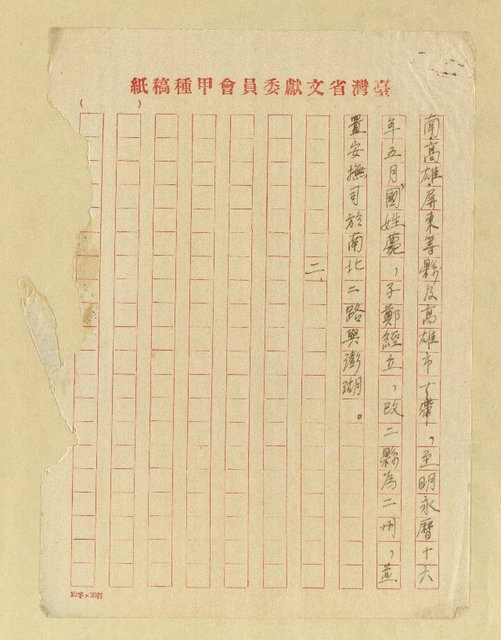 臺灣省文獻委員會甲種稿紙
(　　)
南、高雄、屏東等縣及高雄市一帶，至明永曆十六
年五月國姓薨，子鄭經立，改二縣為二州，並
置安撫司於南北二路與澎湖。
二、
10字×20行